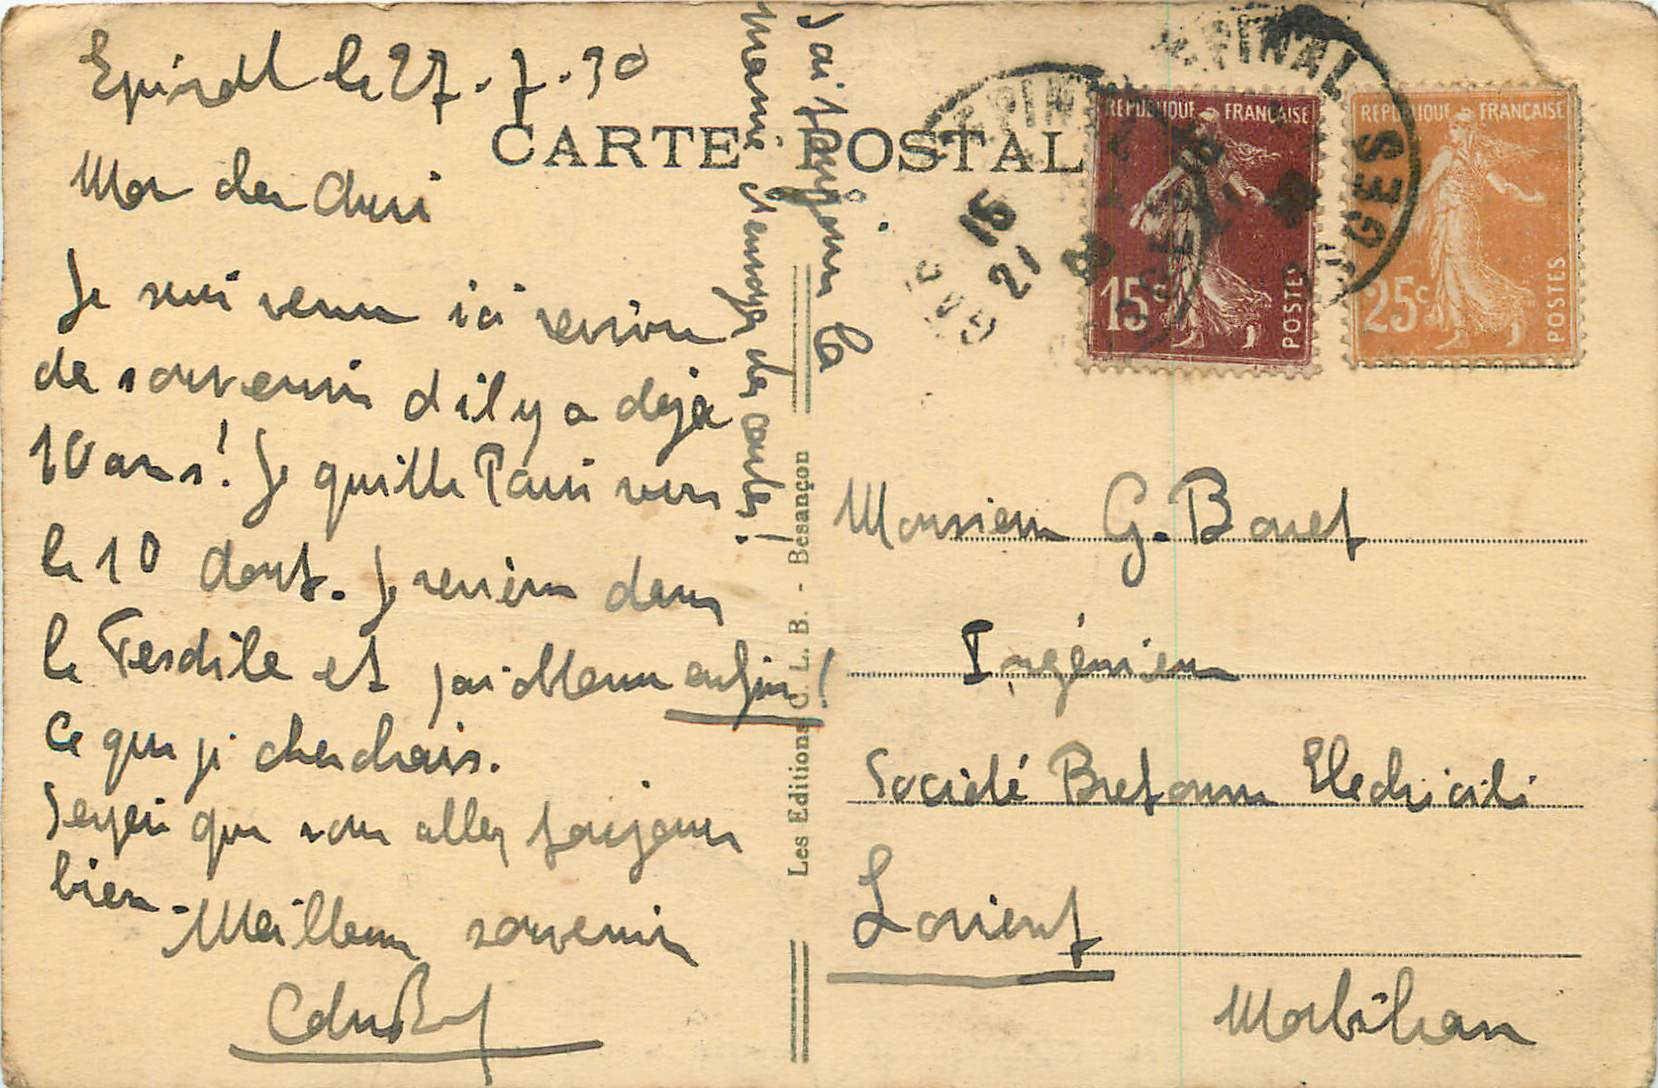 Epinal le 27.7.30
CARTE POSTALE
Mon cher Ami
Je suis venu ici revivre
de souvenirs d'il y a déjà
10 ans! Je quitte Paris vers
le 10 Aout. Je reviens dans
le Textile et j'ai obtenu enfin!
ce que je cherchais.
J'espère que vous allez toujours
bien.
Meilleurs souvenirs
J'ai toujours la
manie d'envoyer des cartes!
Les Editions C. L. B. - Besançon
EPINAL
VOSGES
15
21
REPUBLIQUE FRANÇAISE
15c
POSTES
REPUBLIQUE FRANÇAISE
25c
POSTES
Monsieur G. Bonet
Ingénieur
Société Bretonne Electricité
Lorient
Morbihan